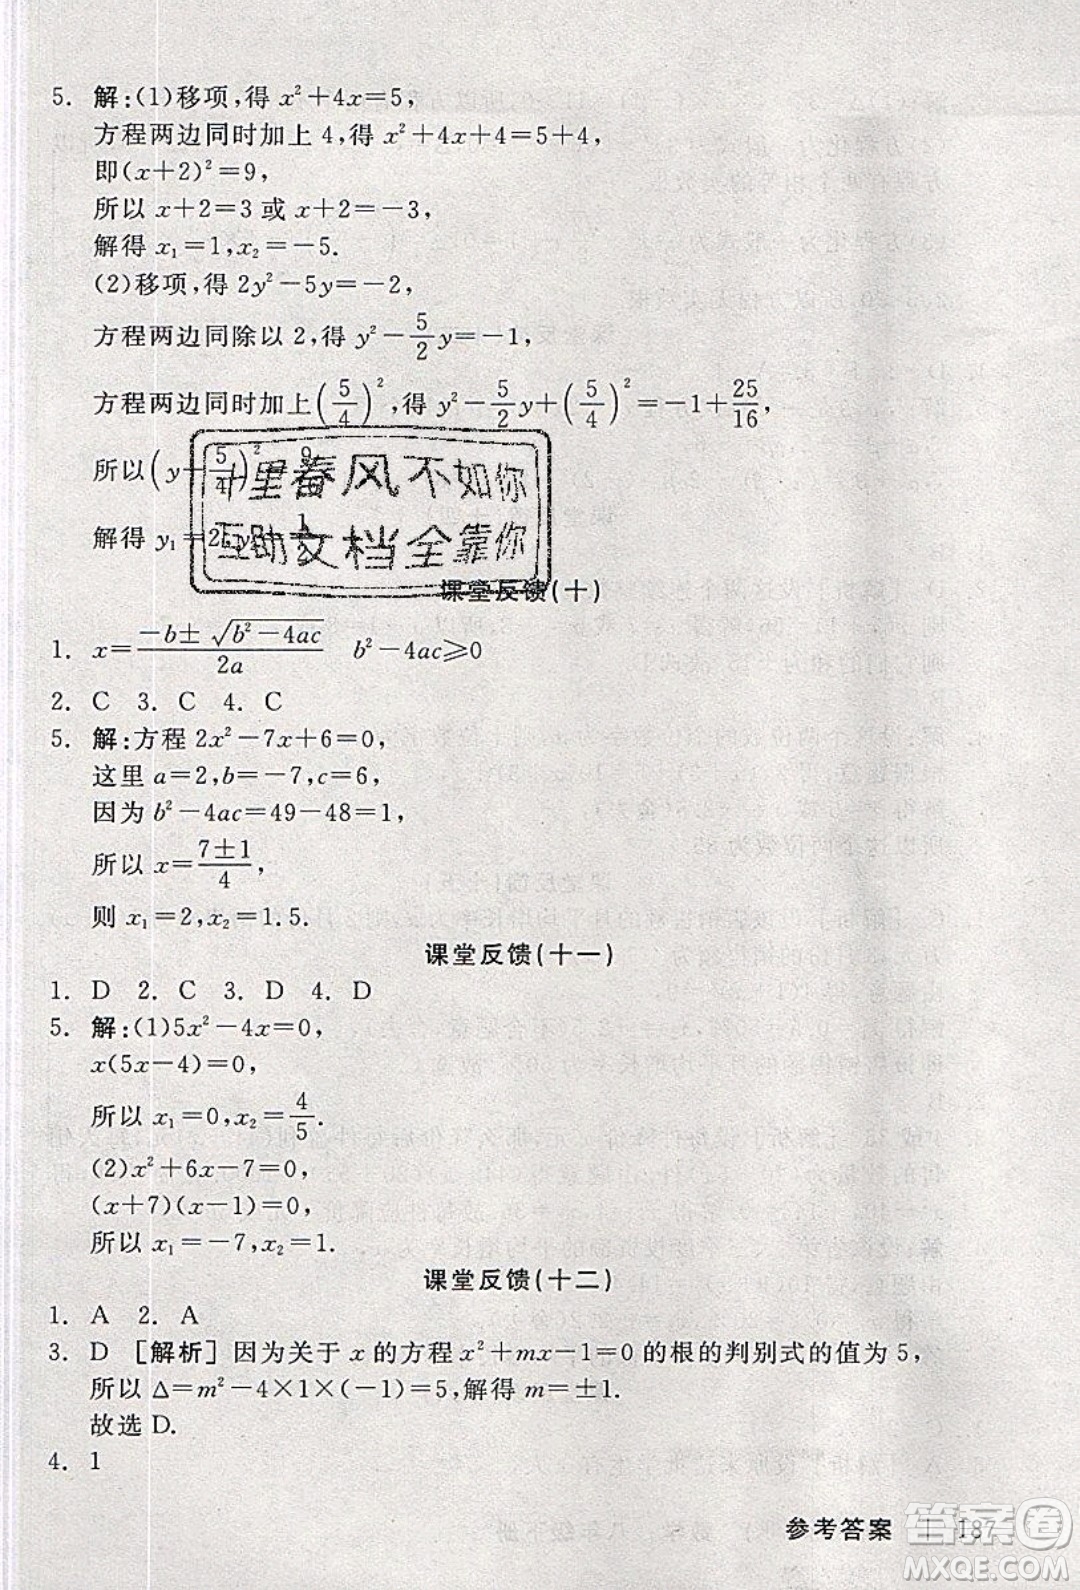 5. 解:(1)移项,得 x²+4x=5,
方程两边同时加上 4,得 x²+4x+4=5+4,
即(x+2)²=9,
所以 x+2=3 或 x+2=-3,
解得 x₁=1,x₂=-5.
(2)移项,得 2y²-5y=-2,
方程两边同除以 2,得 y²-5/2y=-1,
方程两边同时加上(5/4)²,得 y²-5/2y+(5/4)²=-1+25/16,
所以(y-5/4)²=9
解得 y₁=2,y₂=1/2
十里春风不如你
互助文档全靠你
课堂反馈(十)
1. x=(-b±√(b²-4ac))/2a  b²-4ac≥0
2. C 3. C 4. C
5. 解:方程 2x²-7x+6=0,
这里 a=2,b=-7,c=6,
因为 b²-4ac=49-48=1,
所以 x=(7±1)/4,
则 x₁=2,x₂=1.5.
课堂反馈(十一)
1. D 2. C 3. D 4. D
5. 解:(1)5x²-4x=0,
x(5x-4)=0,
所以 x₁=0,x₂=4/5.
(2)x²+6x-7=0,
(x+7)(x-1)=0,
所以 x₁=-7,x₂=1.
课堂反馈(十二)
1. A 2. A
3. D [解析]因为关于 x 的方程 x²+mx-1=0 的根的判别式的值为 5,
所以 Δ=m²-4×1×(-1)=5,解得 m=±1.
故选 D.
4. 1
参考答案 | 187
答案圈
MXQE.COM